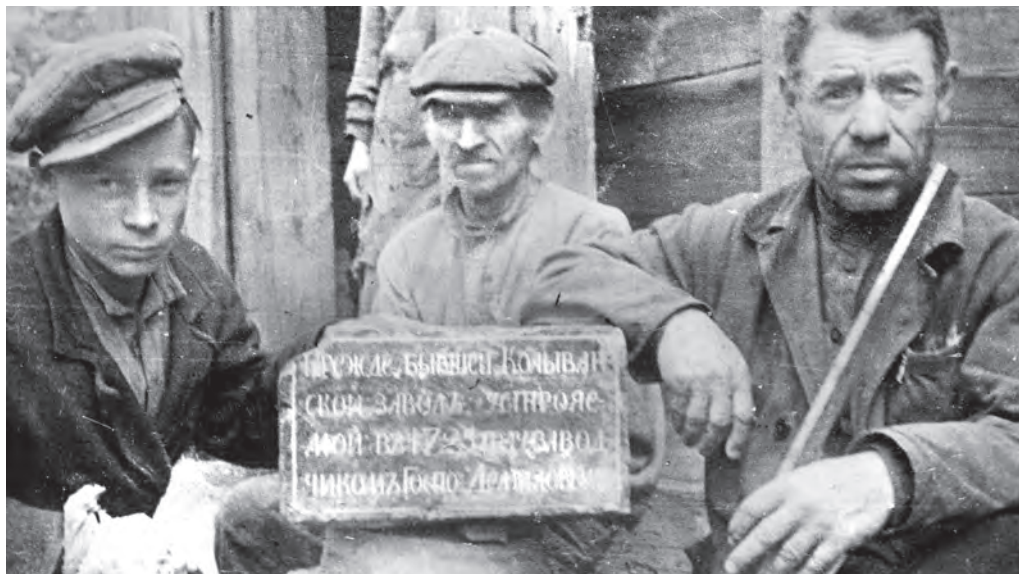 Прежде бывшей Колыван
ской заводъ устрояе
мой въ 1725 году завод
чикомъ Госпо Демидовы